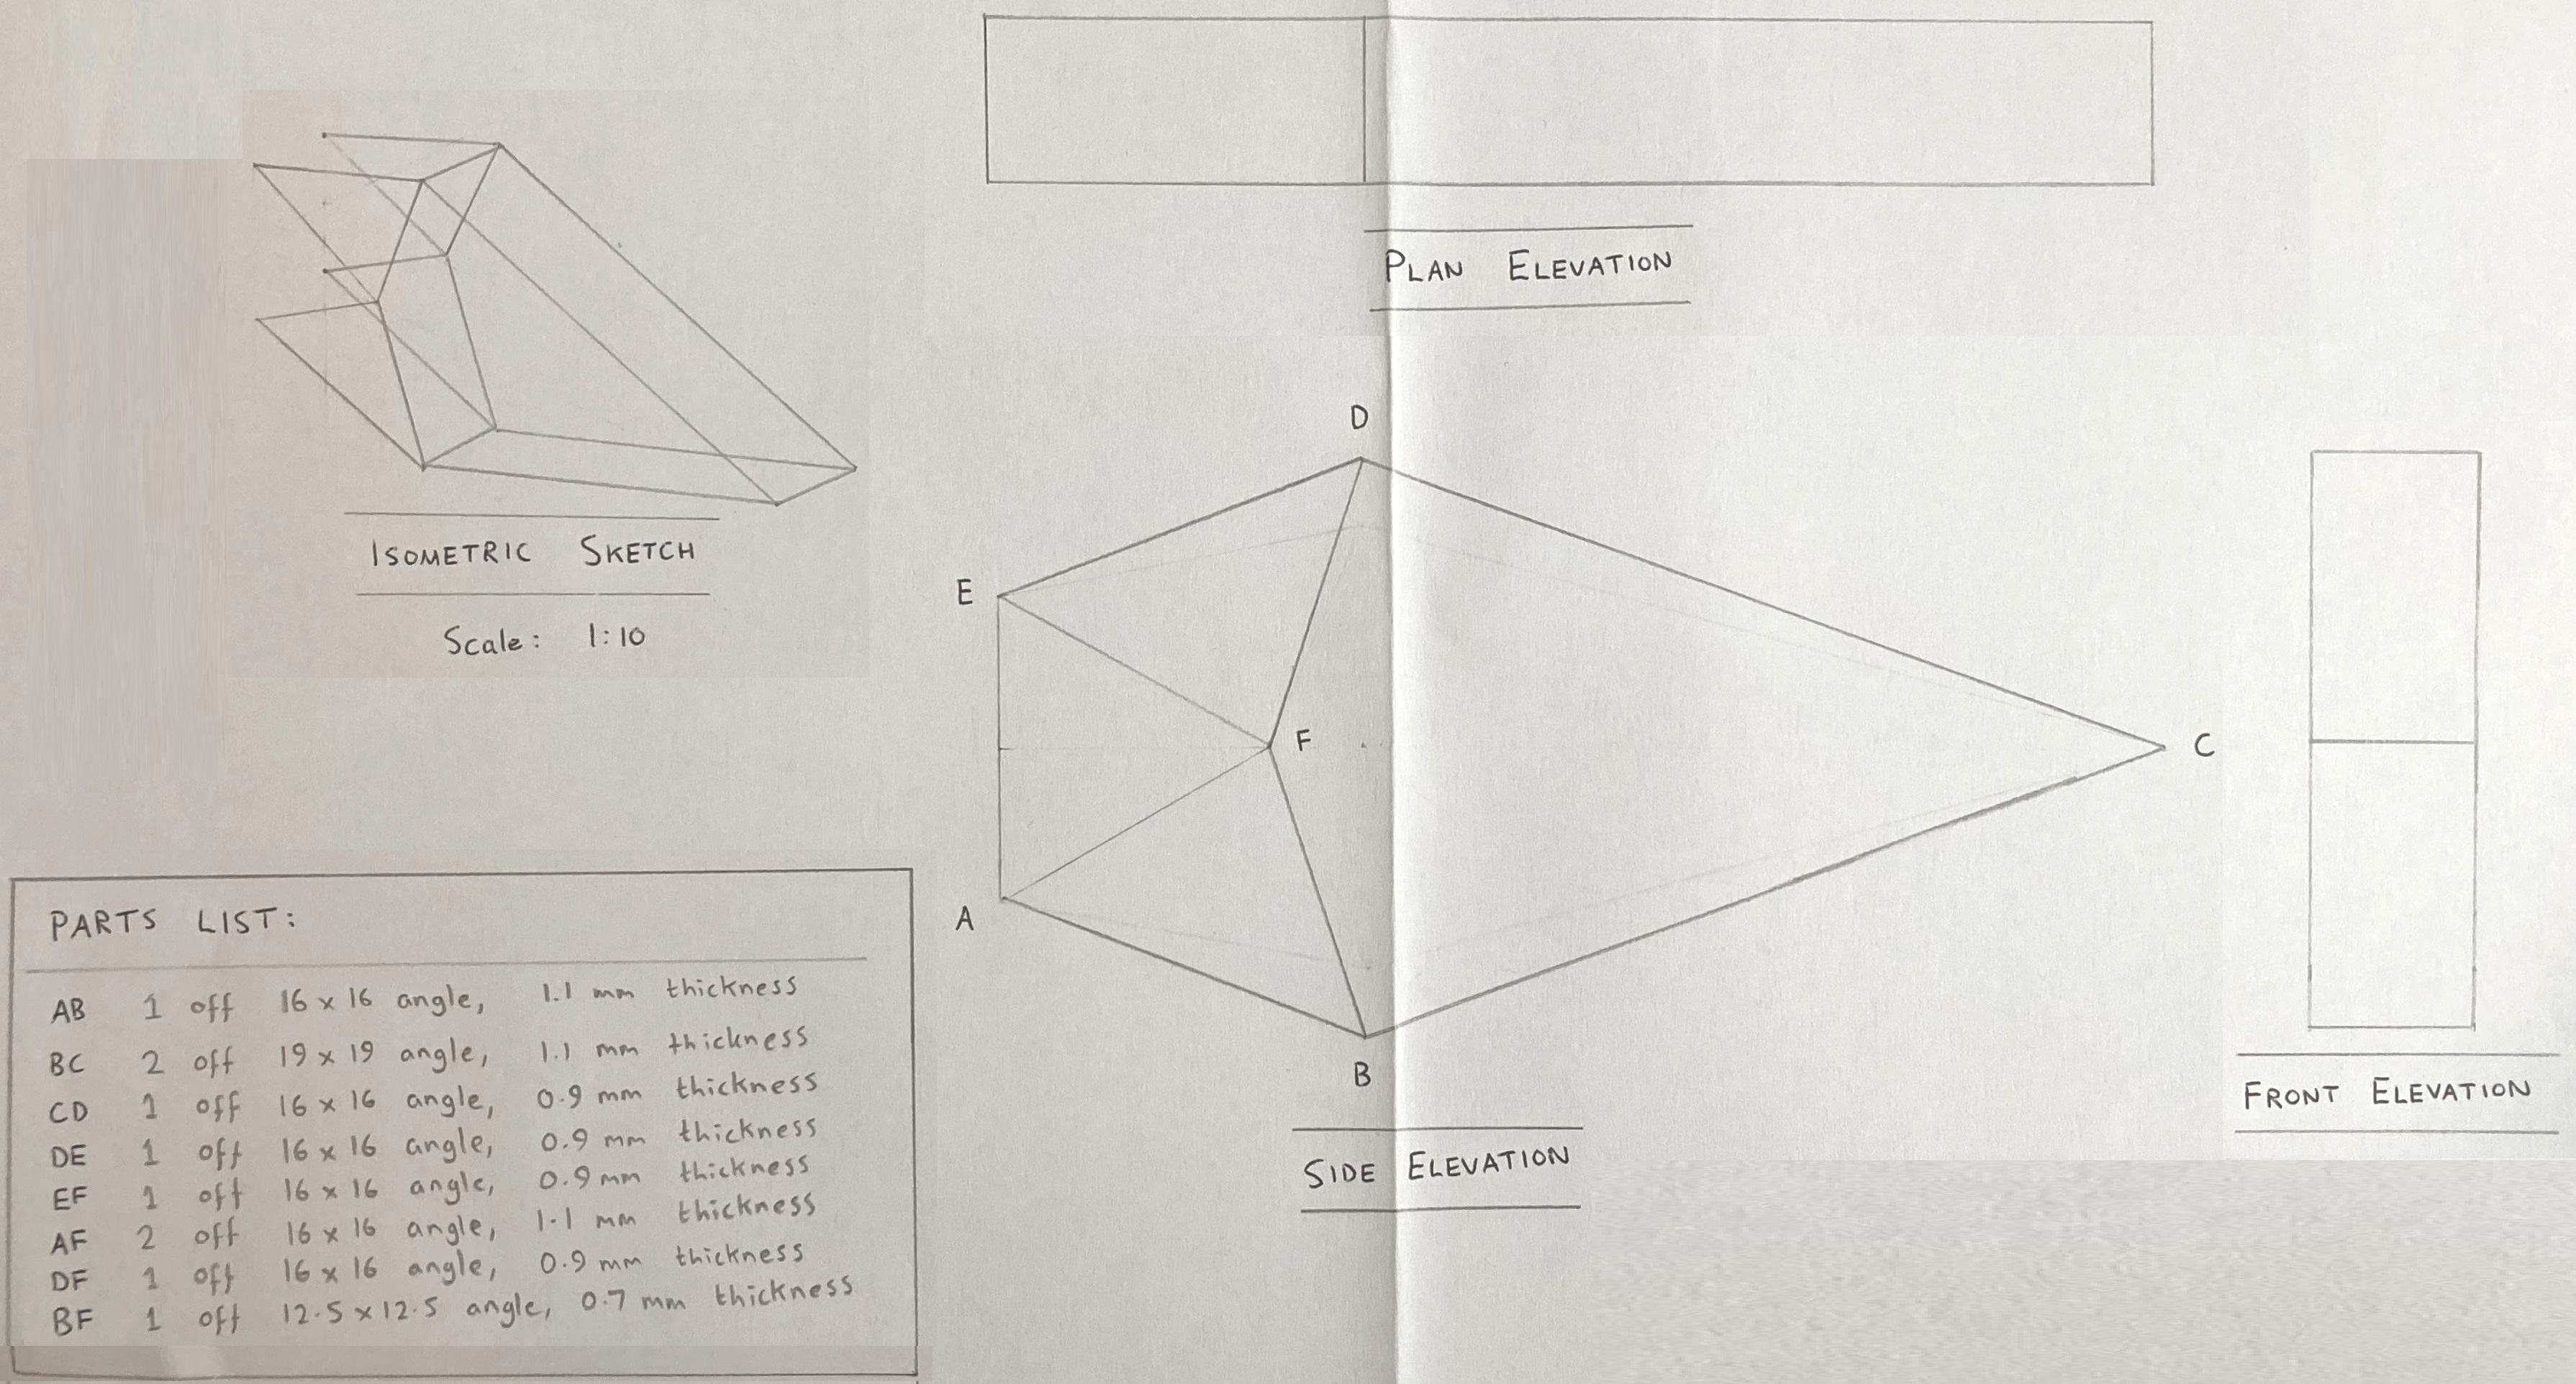 PLAN ELEVATION
D
E
F
C
A
B
ISOMETRIC SKETCH
Scale: 1:10
SIDE ELEVATION
FRONT ELEVATION
PARTS LIST:
AB 1 off 16 x 16 angle, 1.1 mm thickness
BC 2 off 19 x 19 angle, 1.1 mm thickness
CD 1 off 16 x 16 angle, 0.9 mm thickness
DE 1 off 16 x 16 angle, 0.9 mm thickness
EF 1 off 16 x 16 angle, 0.9 mm thickness
AF 2 off 16 x 16 angle, 1.1 mm thickness
DF 1 off 16 x 16 angle, 0.9 mm thickness
BF 1 off 12.5 x 12.5 angle, 0.7 mm thickness